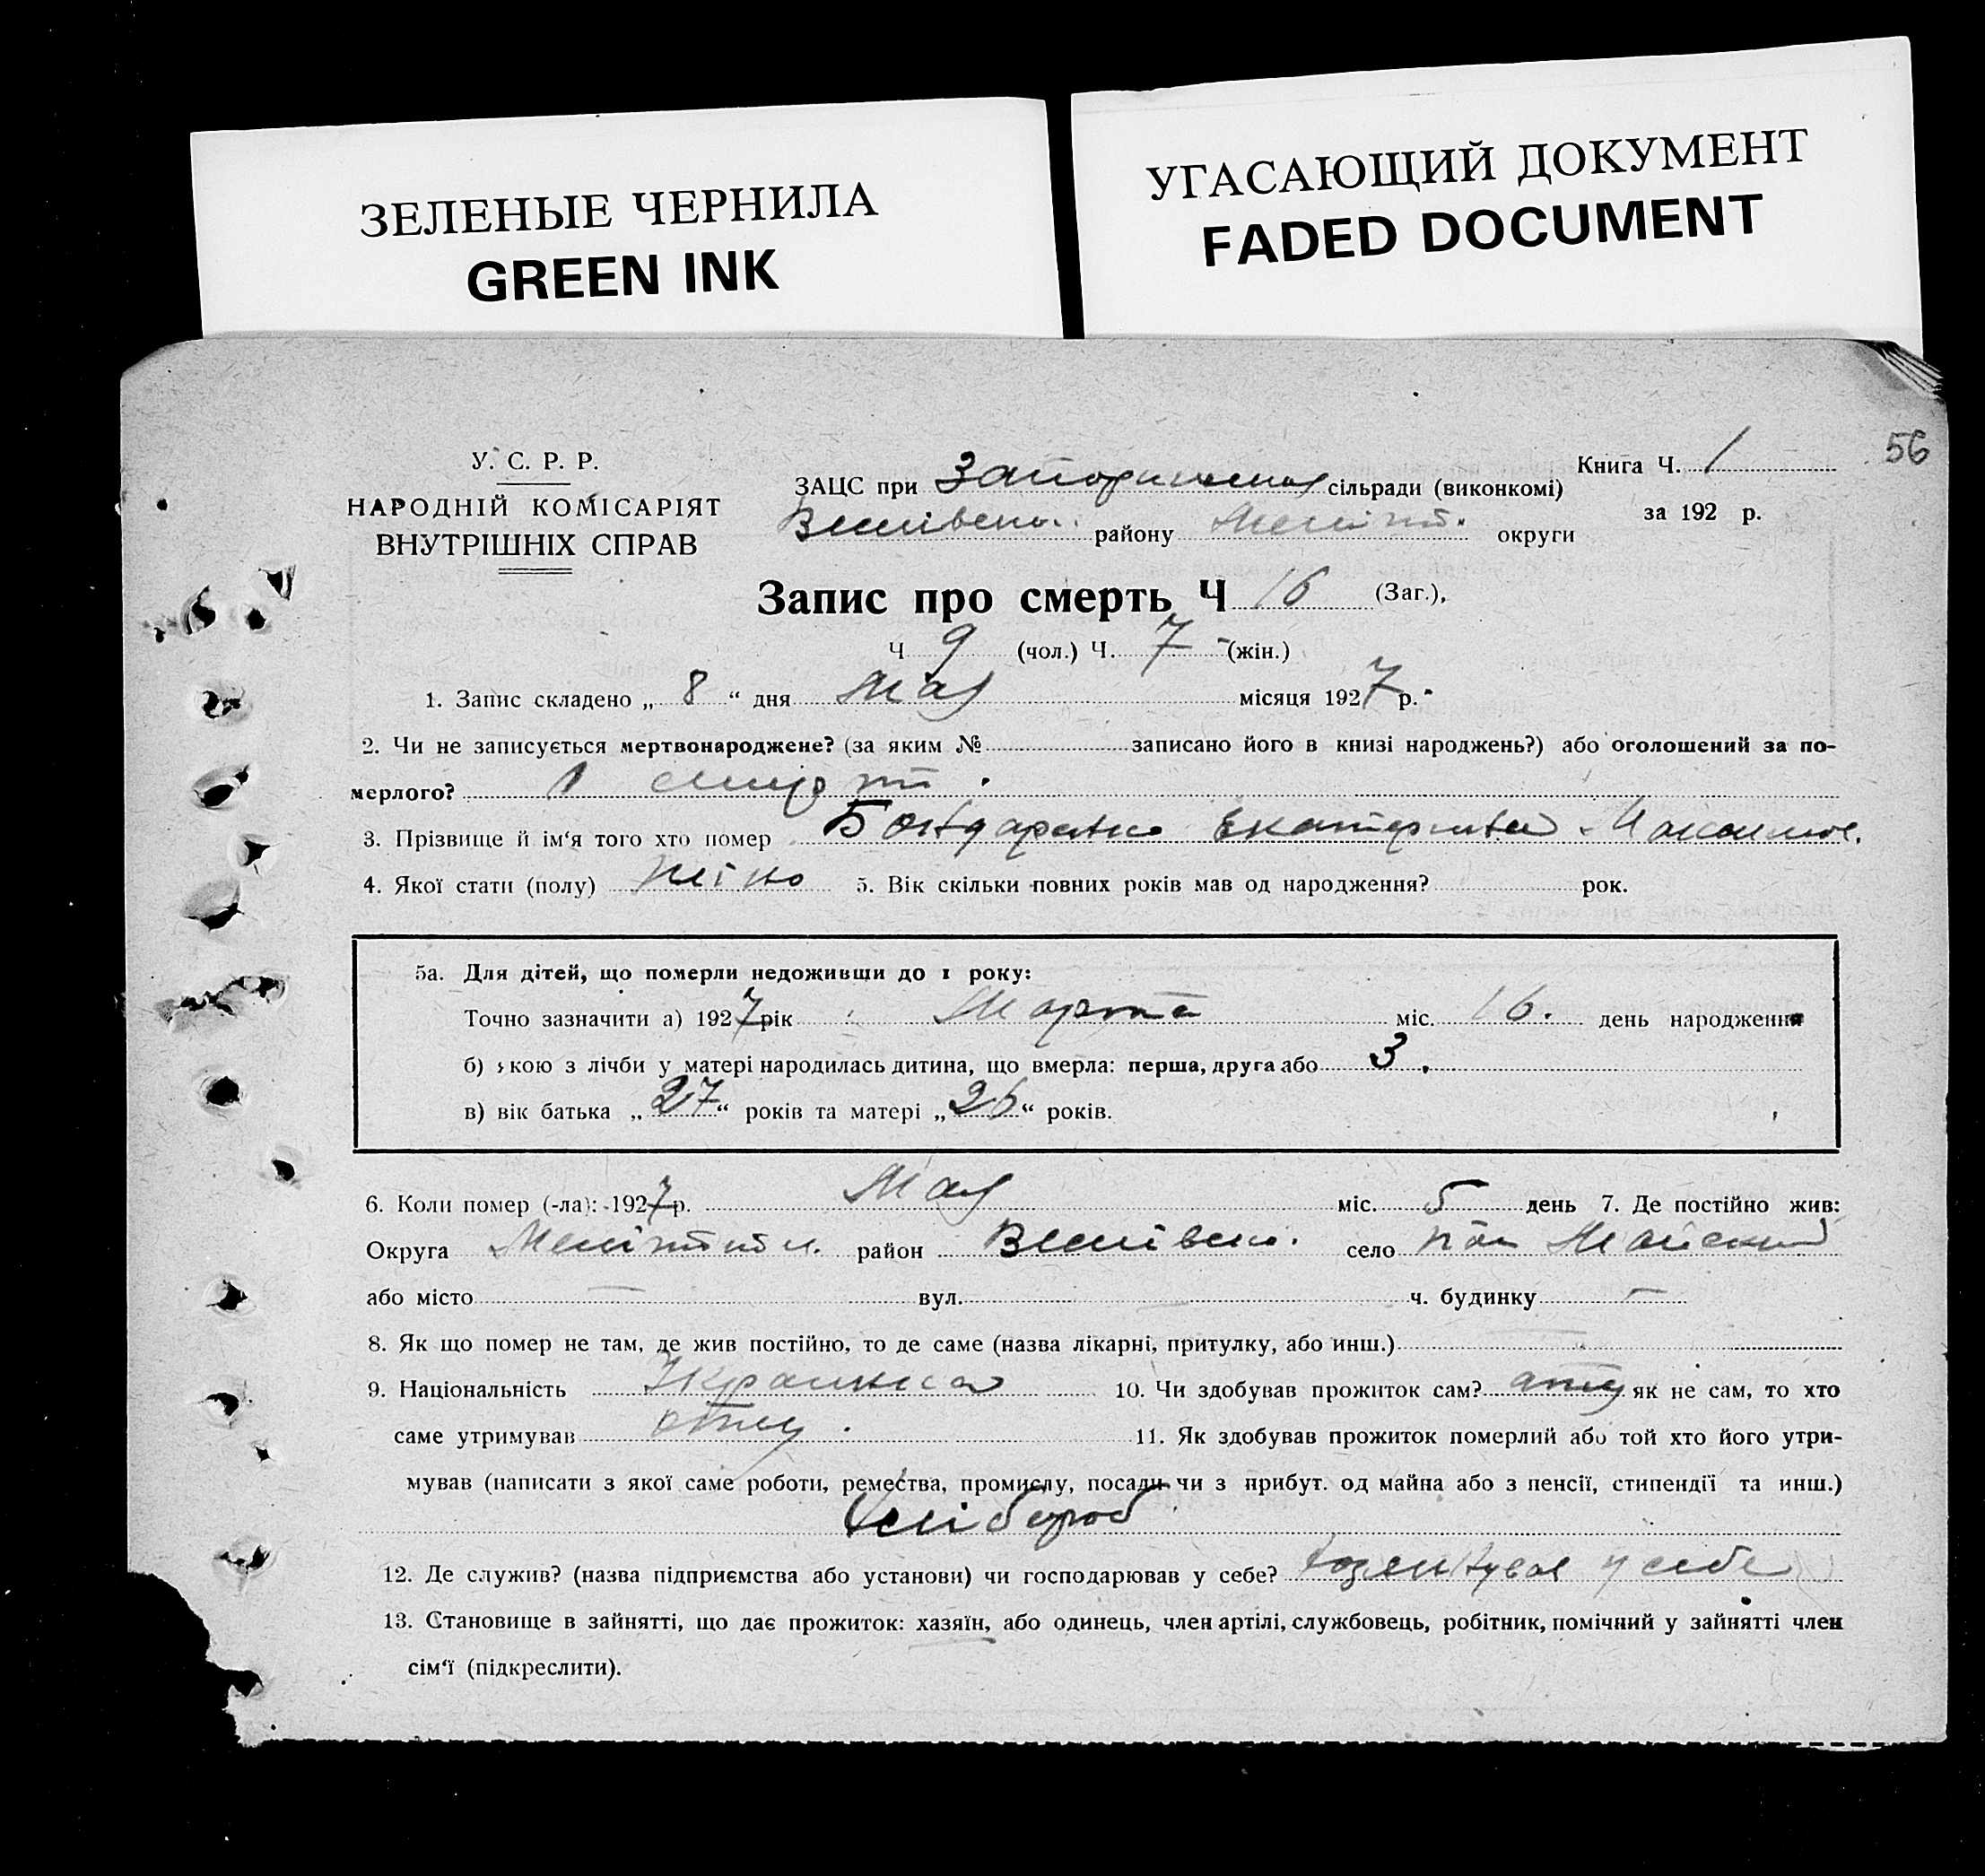 ЗЕЛЕНЫЕ ЧЕРНИЛА
GREEN INK
УГАСАЮЩИЙ ДОКУМЕНТ
FADED DOCUMENT
56
У. С. Р. Р.
НАРОДНІЙ КОМІСАРІЯТ
ВНУТРІШНІХ СПРАВ
Книга Ч. 1
за 192 р.
ЗАЦС при сільради (виконкомі)
району округи
Запис про смерть Ч 16 (Заг.),
Ч 9 (чол.) Ч. 7 (жін.)
1. Запис складено „ 8 “ дня Мая місяця 1927 р.
2. Чи не записується мертвонароджене? (за яким № записано його в книзі народжень?) або оголошений за по-
мерлого?
3. Прізвище й ім‘я того хто помер Бондаренко Екатерина Максимов.
4. Якої стати (полу) 5. Вік скільки повних років мав од народження? рок.
5а. Для дітей, що померли недоживши до 1 року:
Точно зазначити а) 1927 рік Марта міс. 16. день народження
б) якою з лічби у матері народилась дитина, що вмерла: перша, друга або 3.
в) вік батька „ 27 “ років та матері „ 26 “ років.
6. Коли помер (-ла): 1927 р. Мая міс. 5 день 7. Де постійно жив:
Округа район село Майский
або місто — вул. — ч. будинку —
8. Як що помер не там, де жив постійно, то де саме (назва лікарні, притулку, або инш.)
9. Національність Украинка 10. Чи здобував прожиток сам? отец як не сам, то хто
саме утримував отец.
11. Як здобував прожиток померлий або той хто його утри-
мував (написати з якої саме роботи, ремества, промислу, посади чи з прибут. од майна або з пенсії, стипендії та инш.)
Хлібороб
12. Де служив? (назва підприємства або установи) чи господарював у себе? у себе
13. Становище в зайнятті, що дає прожиток: хазяїн, або одинець, член артілі, службовець, робітник, помічний у зайнятті член
сім‘ї (підкреслити).